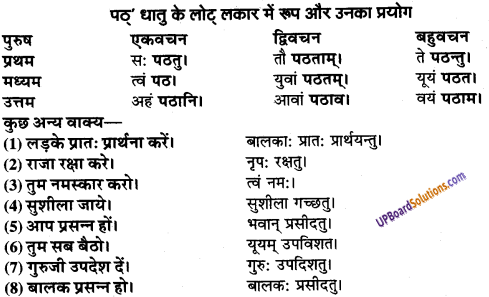 पठ्’ धातु के लोट् लकार में रूप और उनका प्रयोग
पुरुष एकवचन द्विवचन बहुवचन
प्रथम सः पठतु। तौ पठताम्। ते पठन्तु।
मध्यम त्वं पठ। युवां पठतम्। यूयं पठत।
उत्तम अहं पठानि। आवां पठाव। वयं पठाम।
कुछ अन्य वाक्य—
(1) लड़के प्रातः प्रार्थना करें। बालकाः प्रातः प्रार्थयन्तु।
(2) राजा रक्षा करे। नृपः रक्षतु।
(3) तुम नमस्कार करो। त्वं नमः।
(4) सुशीला जाये। सुशीला गच्छतु।
(5) आप प्रसन्न हों। भवान् प्रसीदतु।
(6) तुम सब बैठो। यूयम् उपविशत।
(7) गुरुजी उपदेश दें। गुरुः उपदिशतु।
(8) बालक प्रसन्न हो। बालकः प्रसीदतु।
UPBoardSolutions.com